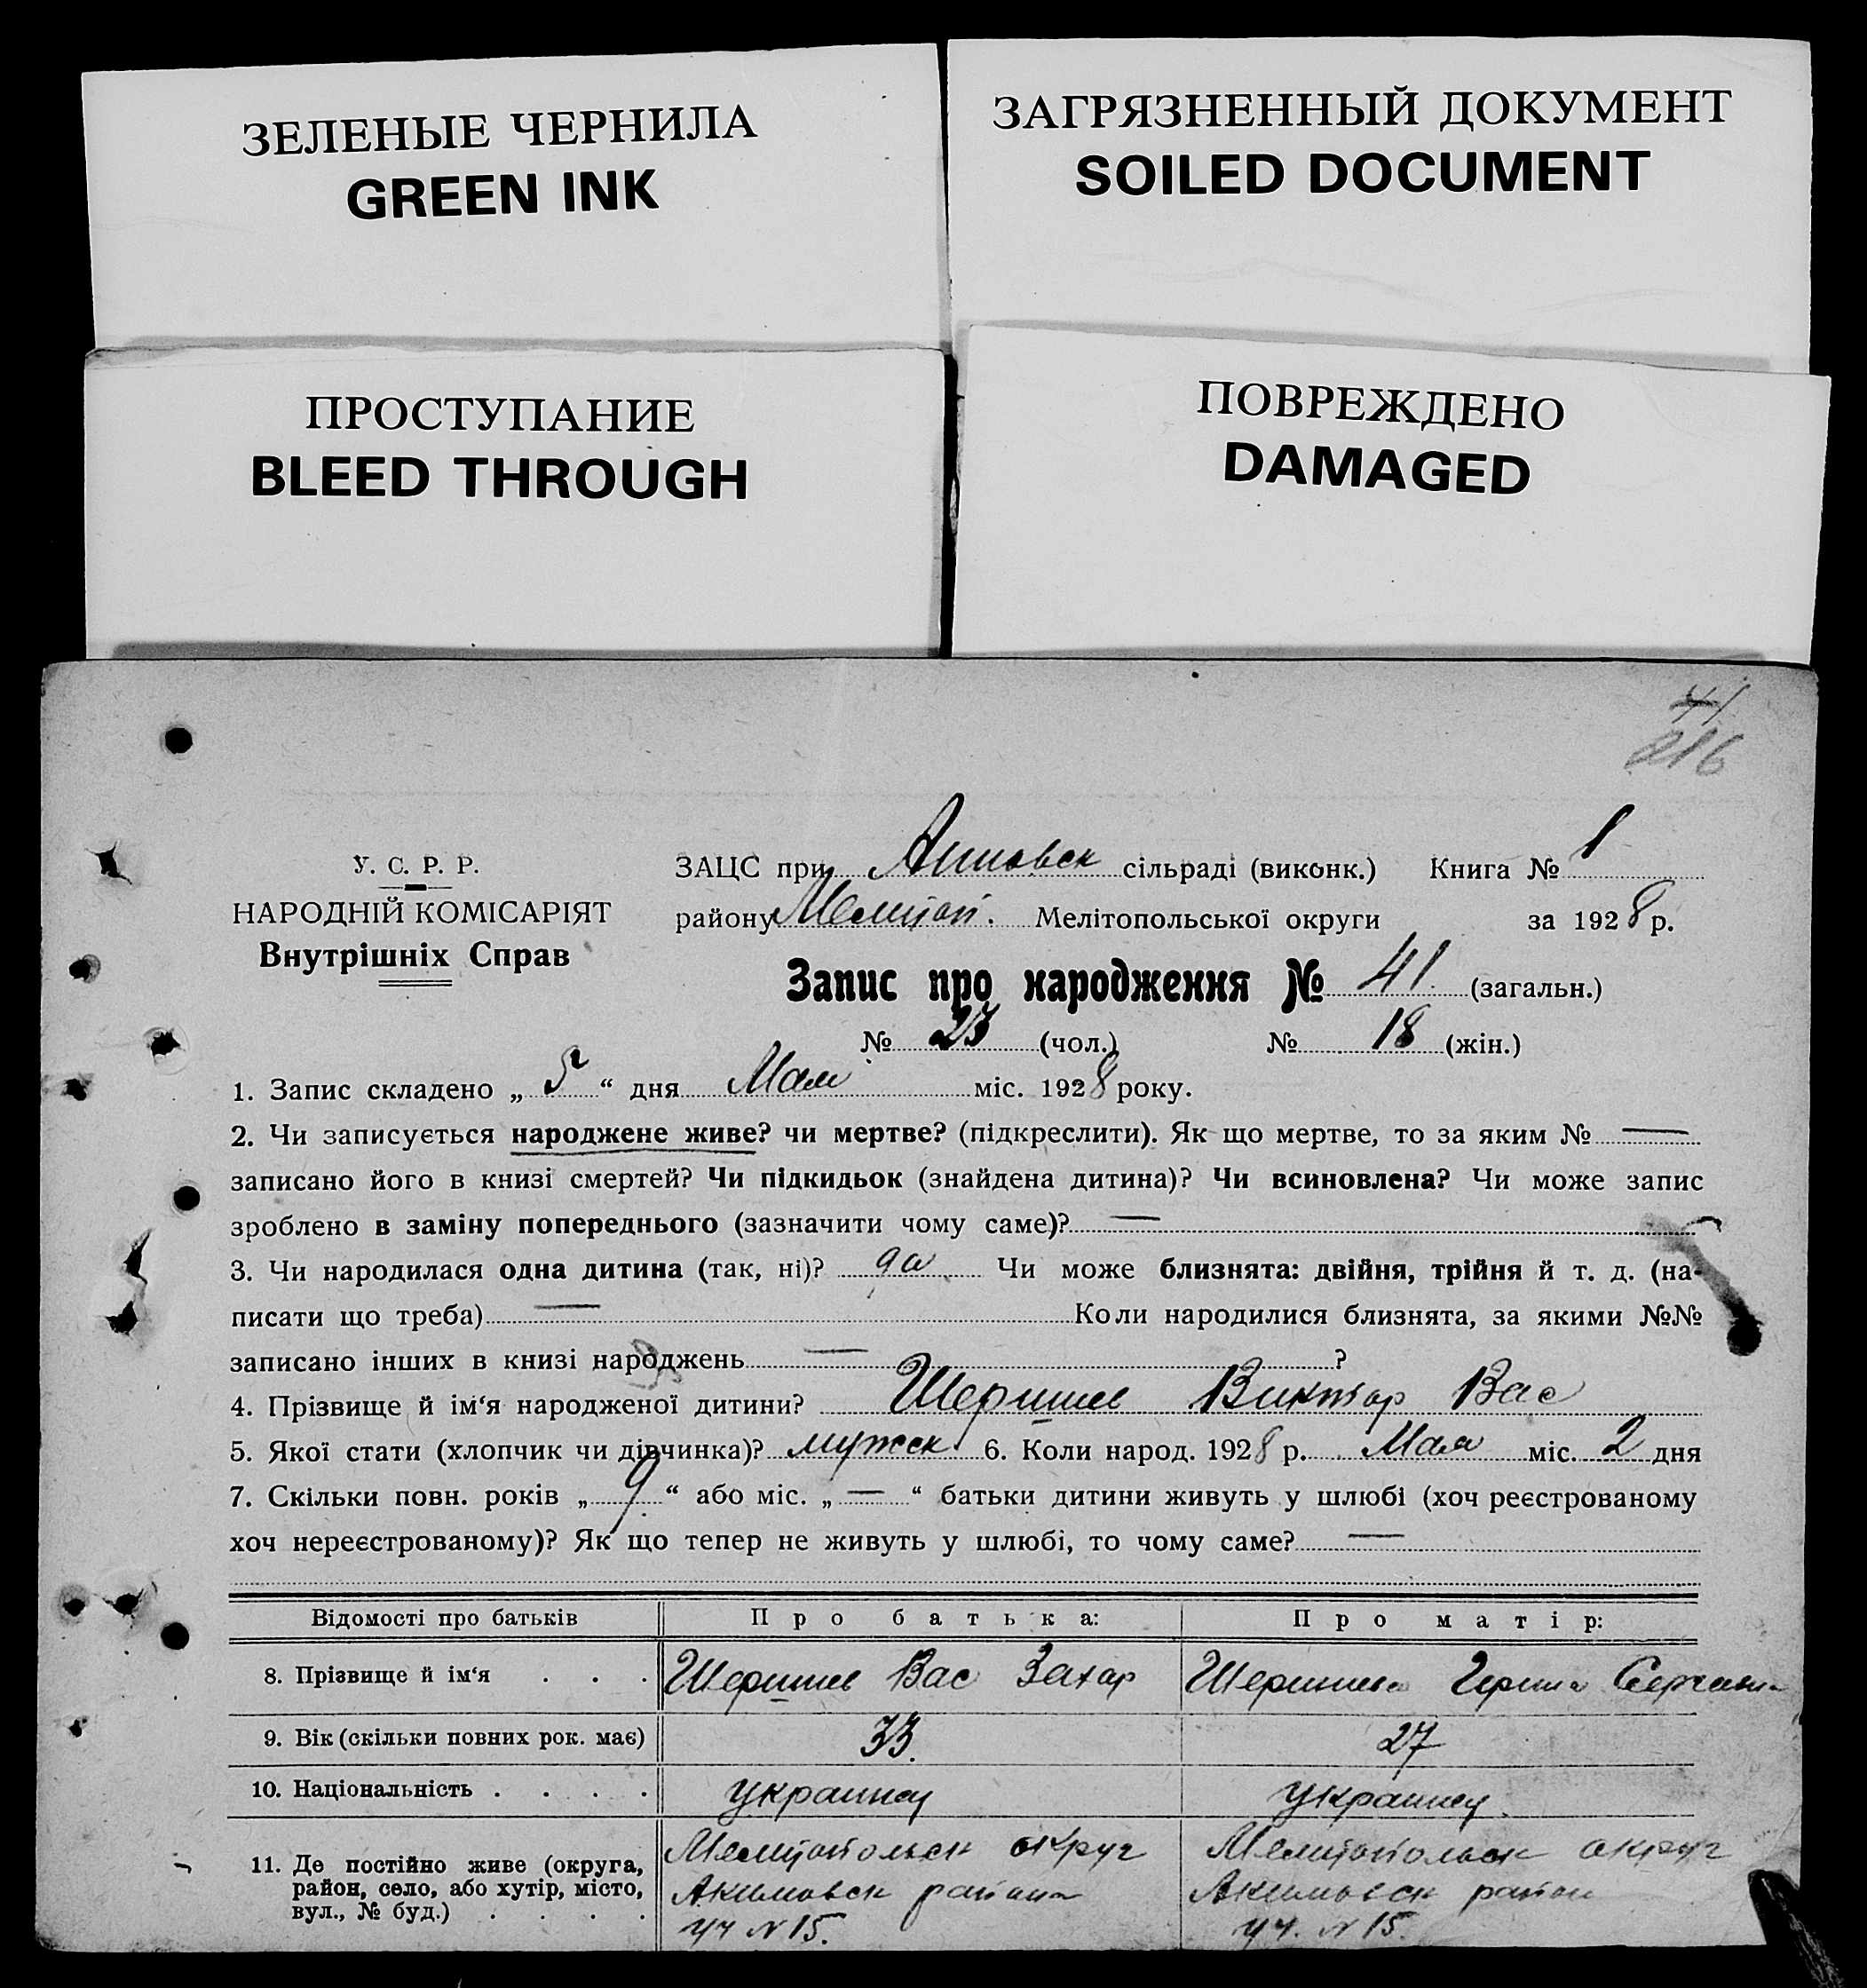 ЗЕЛЕНЫЕ ЧЕРНИЛА
GREEN INK
ЗАГРЯЗНЕННЫЙ ДОКУМЕНТ
SOILED DOCUMENT
ПРОСТУПАНИЕ
BLEED THROUGH
ПОВРЕЖДЕНО
DAMAGED
41
216
У. С. Р. Р.
НАРОДНІЙ КОМІСАРІЯТ
Внутрішніх Справ
ЗАЦС при сільраді (виконк.) Книга № 1
району Мелитоп. Мелітопольської округи за 1928 р.
Запис про народження № 41. (загальн.)
№ 23 (чол.) № 18 (жін.)
1. Запис складено „ 5 “ дня Мая міс. 1928 року.
2. Чи записується народжене живе? чи мертве? (підкреслити). Як що мертве, то за яким № —
записано його в книзі смертей? Чи підкидьок (знайдена дитина)? Чи всиновлена? Чи може запис
зроблено в заміну попереднього (зазначити чому саме)? —
3. Чи народилася одна дитина (так, ні)? да Чи може близнята: двійня, трійня й т. д. (на-
писати що треба) — Коли народилися близнята, за якими №№
записано інших в книзі народжень — ?
4. Прізвище й ім‘я народженої дитини? Виктор Вас
5. Якої стати (хлопчик чи дівчинка)? мужск 6. Коли народ. 1928 р. Мая міс. 2 дня
7. Скільки повн. років „ 9 “ або міс. „ — “ батьки дитини живуть у шлюбі (хоч реєстрованому
хоч нереєстрованому)? Як що тепер не живуть у шлюбі, то чому саме? —
Відомості про батьків Про батька: Про матір:
8. Прізвище й ім‘я . . . Вас Захар
9. Вік (скільки повних рок. має) 33. 27
10. Національність . . . . украинец украинец
11. Де постійно живе (округа,
район, село, або хутір, місто,
вул., № буд.) . . . .
Мелитопольск округ
Акимовск район
уч N 15.
Мелитопольск округ
Акимовск район
уч. N 15.